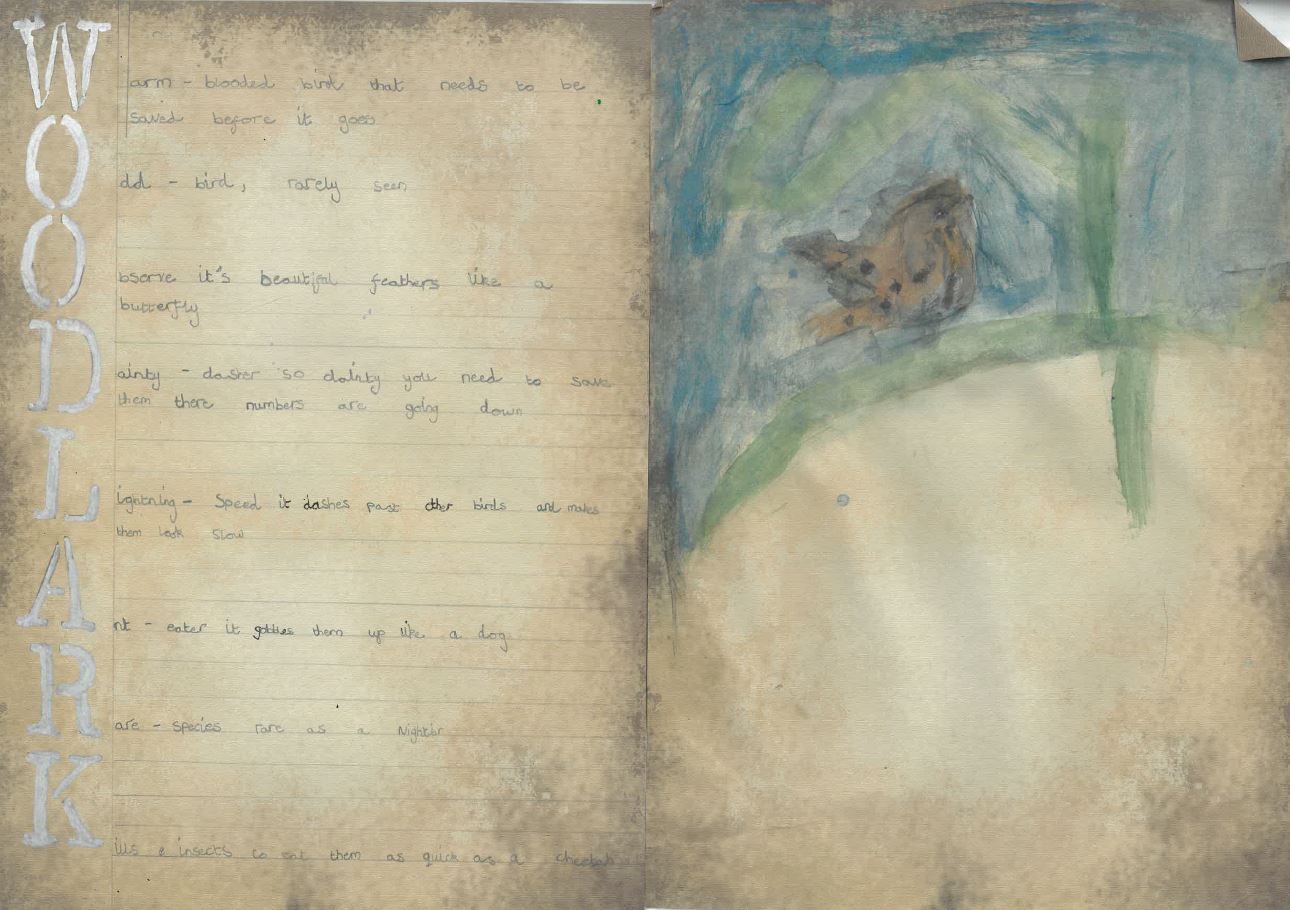 Warm - blooded bird that needs to be
saved before it goes
Odd - bird, rarely seen
Observe it's beautiful feathers like a
butterfly
Dainty - dasher so dainty you need to save
them there numbers are going down
Lightning - Speed it dashes past other birds and makes
them look slow
Ant - eater it gobbles them up like a dog
Rare - species rare as a
Kills insects to eat them as quick as a cheetah